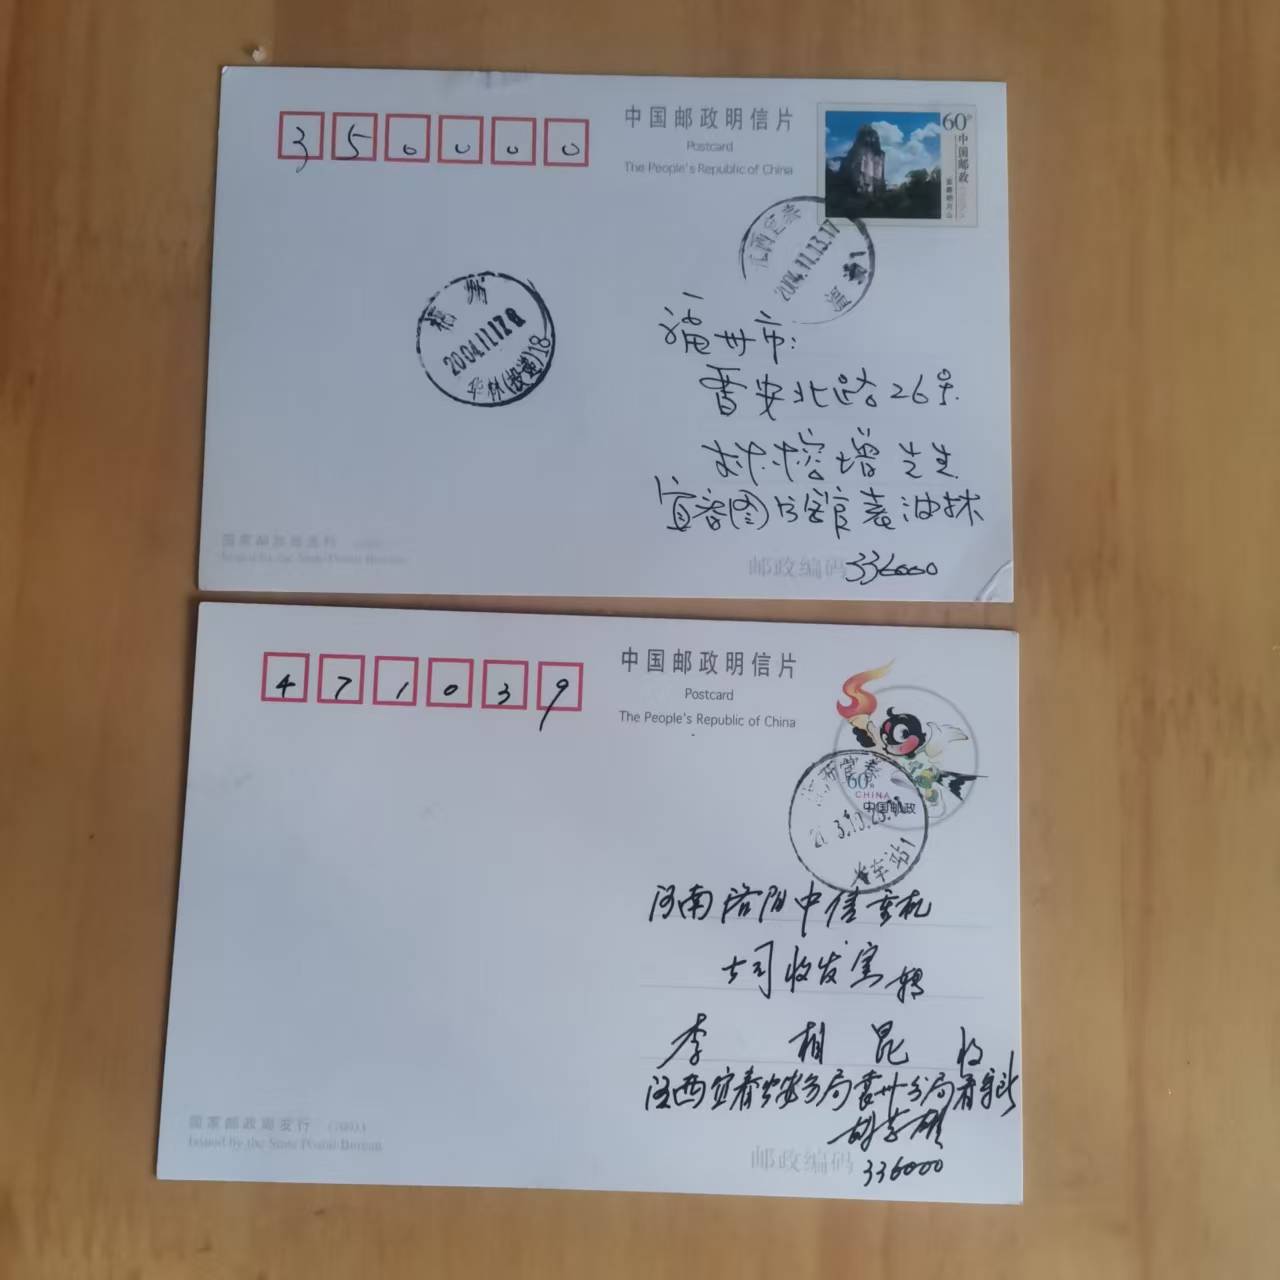 350000
中国邮政明信片
Postcard
The People's Republic of China
60分
中国邮政
宜春明月山
江西宜春
2004.11.13.17
温汤1
福州
2004.11.17
华林(投递)18
福州市:
晋安北路26号
林榕增先生
宜春图书馆袁油抹
国家邮政局发行
Issued by the State Postal Bureau
邮政编码 336000
471039
中国邮政明信片
Postcard
The People's Republic of China
60分
CHINA
中国邮政
江西宜春
火车站1
河南洛阳中信重机
公司收发室转
李相昆 收
江西宜春公安分局袁州分局
国家邮政局发行
Issued by the State Postal Bureau
邮政编码 336000